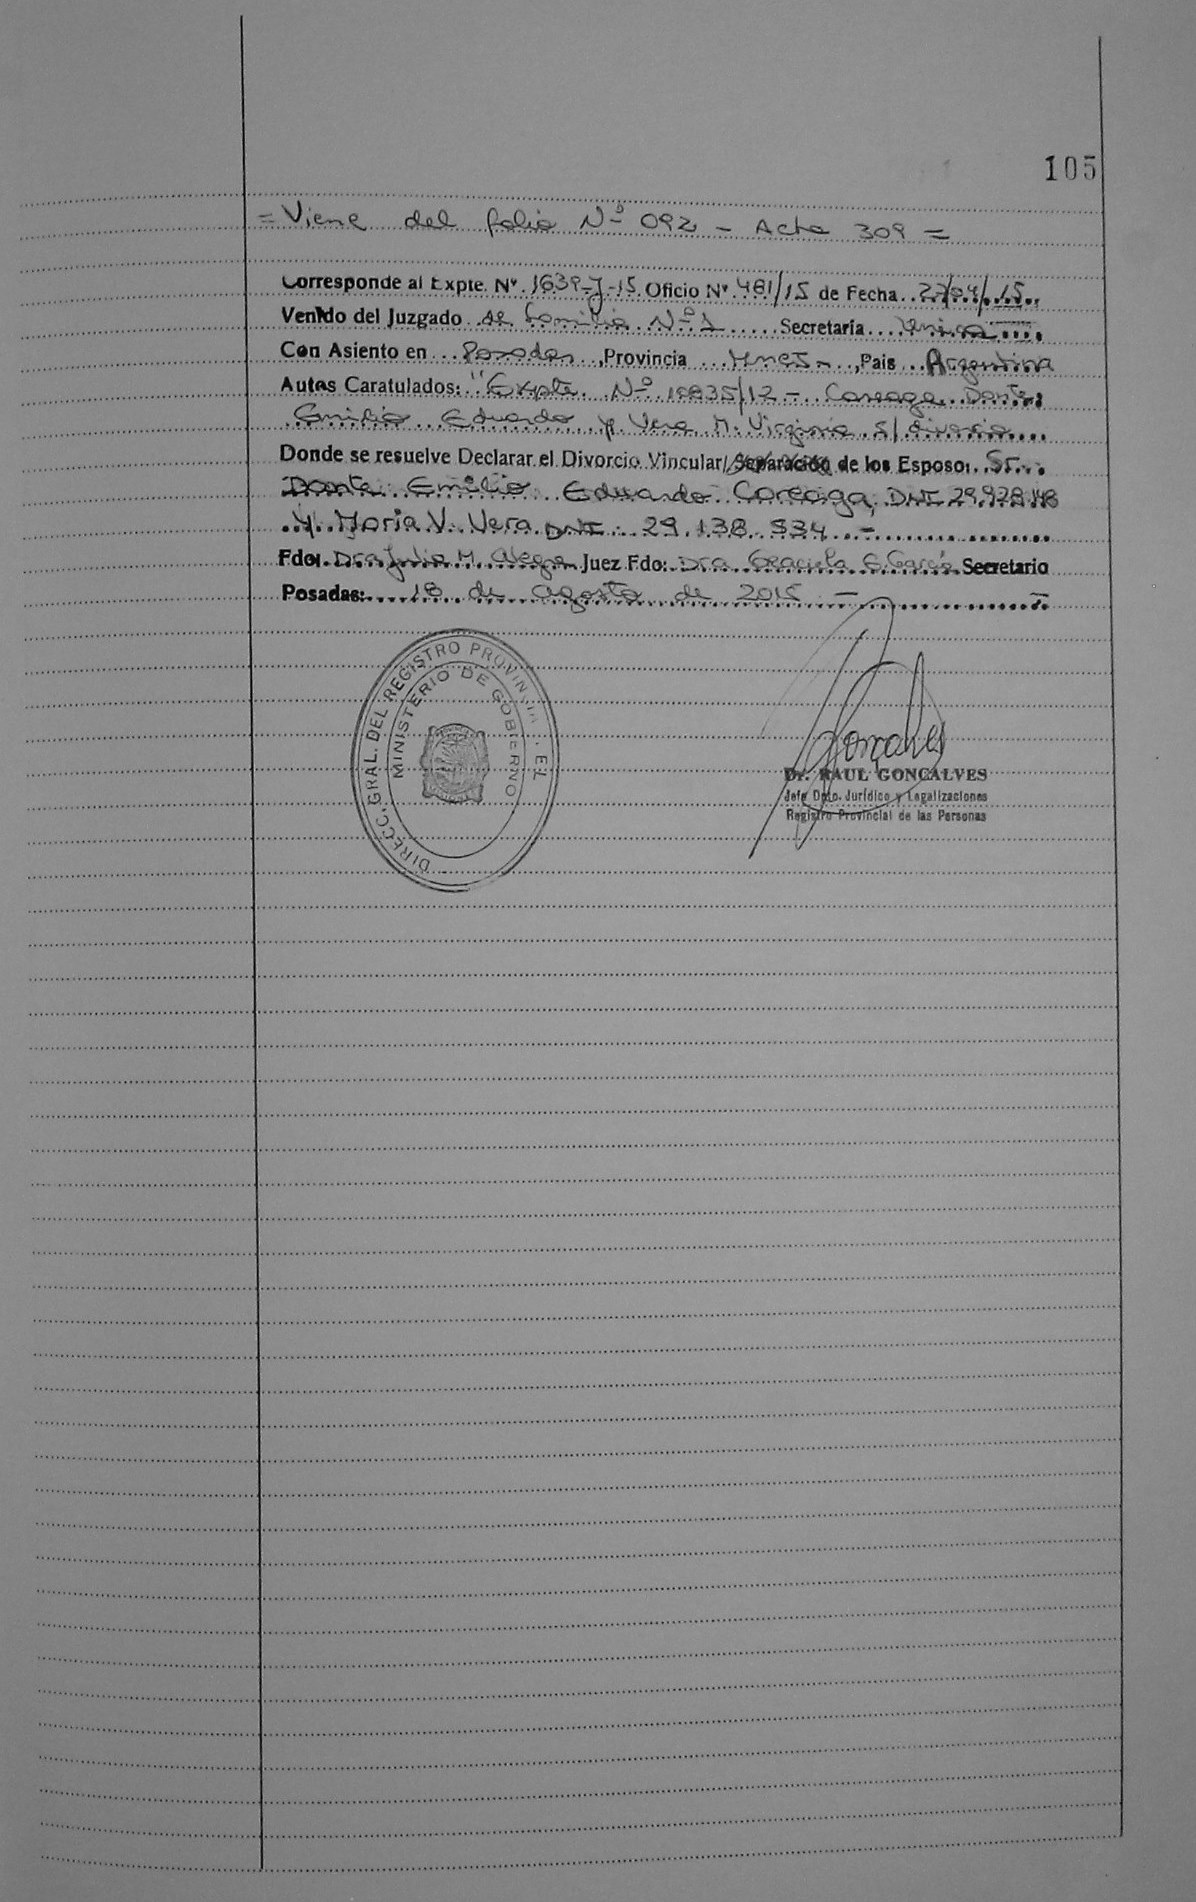 105
= Viene del folio Nº 092 - Acta 309 =
Corresponde al Expte. Nº 1639-J-15 Oficio Nº 481/15 de Fecha 27/04/15
Venido del Juzgado de Familia Nº 1 Secretaria Unica
Con Asiento en Posadas, Provincia Mnes -, Pais Argentina
Autos Caratulados: "Expte. Nº 16835/12 - Coreaga Dante
Emilio Eduardo y Vera M. Virginia s/ divorcio
Donde se resuelve Declarar el Divorcio Vincular/ Separación de los Esposo: Sr.
Dante Emilio Eduardo Coreaga, DNI 29.928.148
y Maria V. Vera DNI 29.138.934 -
Fdo: Dra Julia M. Alegre Juez Fdo: Dra Graciela E. Garcia Secretario
Posadas: 18 de agosto de 2015 -
DIRECC. GRAL. DEL REGISTRO PROVINCIAL
MINISTERIO DE GOBIERNO
Gonçalves
Dr. RAUL GONCALVES
Jefe Dpto. Jurídico y Legalizaciones
Registro Provincial de las Personas